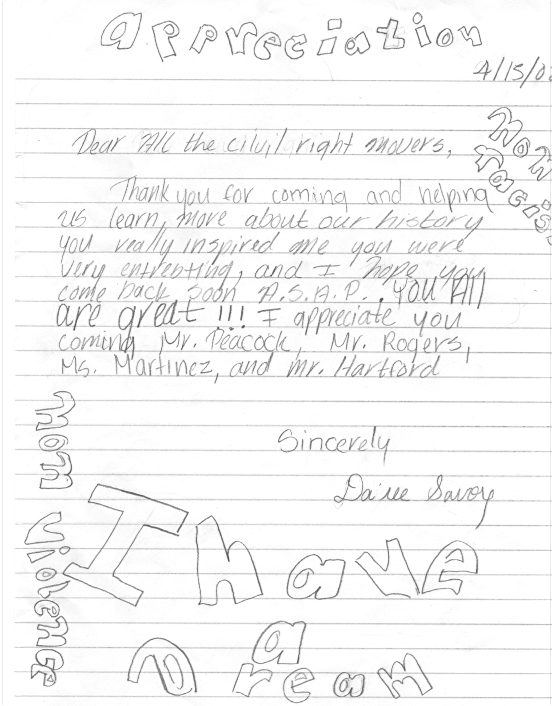 appreciation
4/15/02
Dear All the cilvil right movers,
Non
racis
Thank you for coming and helping
us learn, more about our history
you really inspired me you were
very entrebting, and I hope you
come back soon A.S.A.P., you All
are great!!! I appreciate you
coming Mr. Peacock, Mr. Rogers,
Ms. Martinez, and mr. Hartford
Sincerely
Savoy
Non Violence
I have
a dream